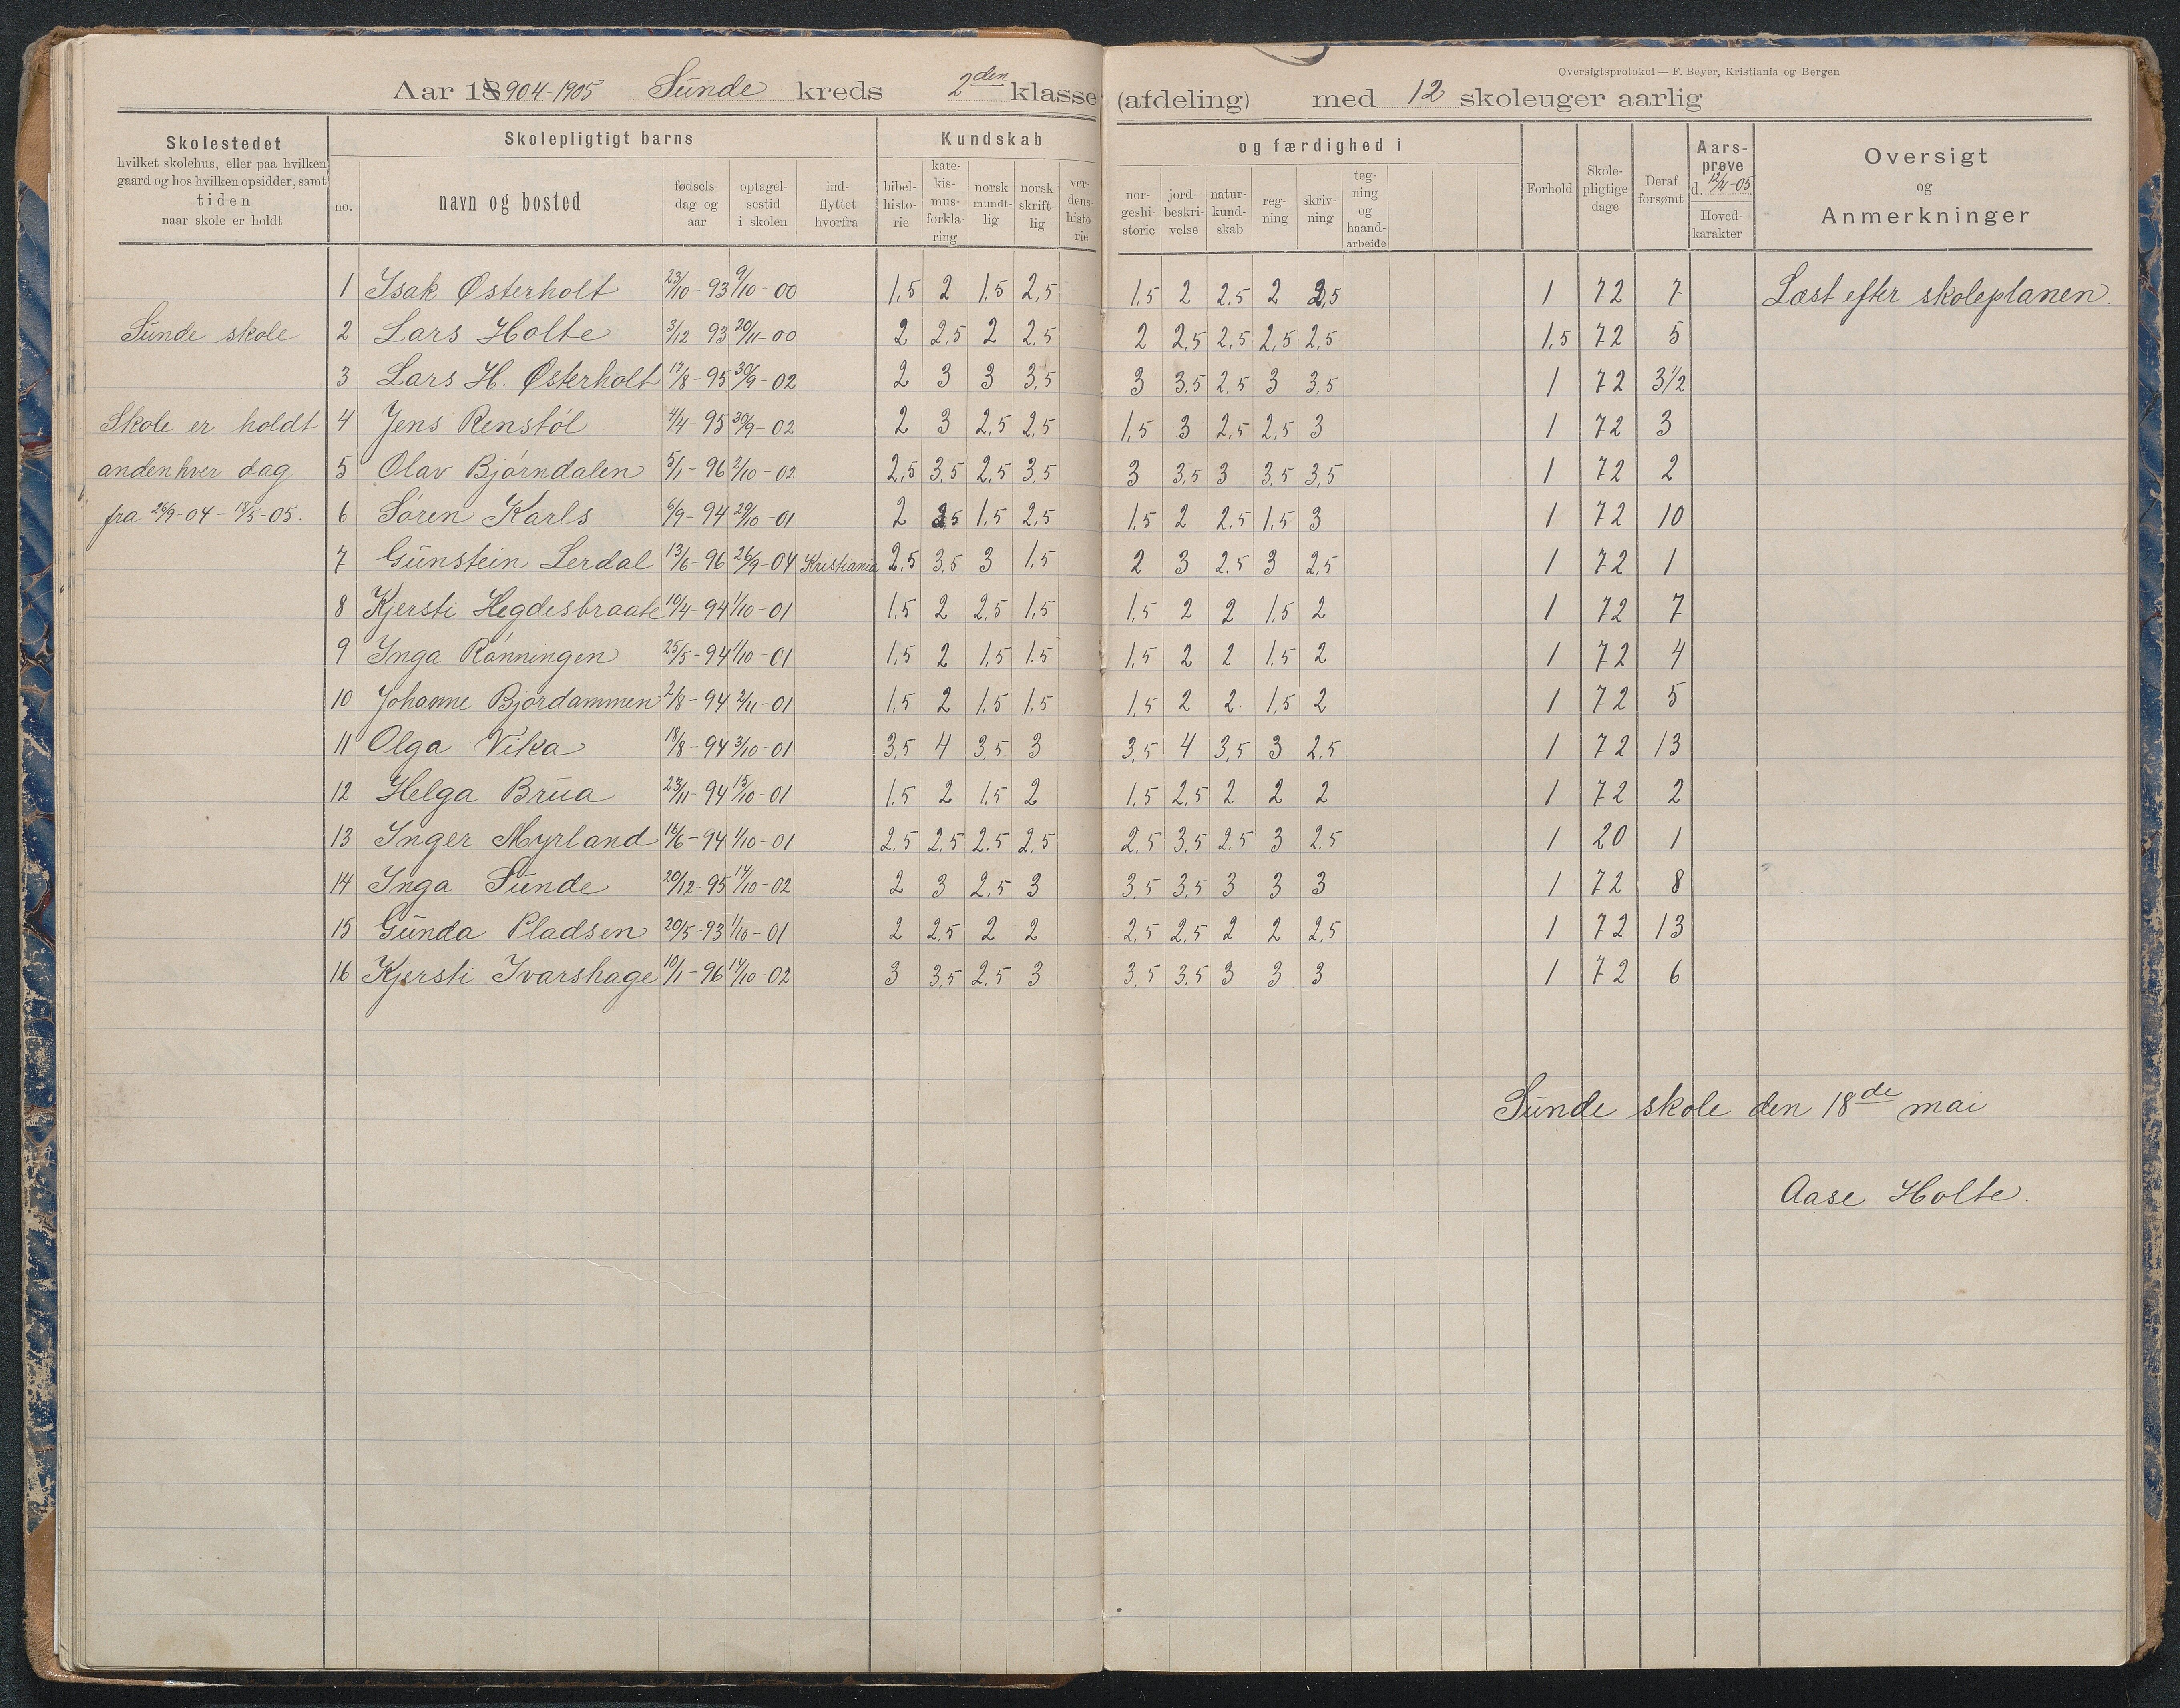 Oversigtsprotokol — F. Beyer, Kristiania og Bergen
Aar 1904-1905 Sunde kreds 2den klasse (afdeling) med 12 skoleuger aarlig
Skolestedet hvilket skolehus, eller paa hvilken gaard og hos hvilken opsidder, samt tiden naar skole er holdt
Skolepligtigt barns
no. navn og bosted fødsels-dag og aar optagel-sestid i skolen ind-flyttet hvorfra
Kundskab og færdighed i
bibel-histo-rie kate-kis-mus-forkla-ring norsk mundt-lig norsk skrift-lig ver-dens-histo-rie nor-geshi-storie jord-beskri-velse natur-kund-skab reg-ning skriv-ning teg-ning og haand-arbeide
Forhold Skole-pligtige dage Deraf forsømt Aars-prøve d. 12/4-05. Hoved-karakter
Oversigt og Anmerkninger
1 Isak Østerholt 23/10-93 9/10-00 1,5 2 1,5 2,5 1,5 2 2,5 2 2,5 1 72 7 Læst efter skoleplanen.
Sunde skole 2 Lars Holte 3/12-93 20/11-00 2 2,5 2 2,5 2 2,5 2,5 2,5 2,5 1,5 72 5
3 Lars H. Østerholt 17/8-95 30/9-02 2 3 3 3,5 3 3,5 2,5 3 3,5 1 72 3 1/2
Skole er holdt 4 Jens Renstøl 4/4-95 30/9-02 2 3 2,5 2,5 1,5 3 2,5 2,5 3 1 72 3
anden hver dag 5 Olav Bjørndalen 5/1-96 2/10-02 2,5 3,5 2,5 3,5 3 3,5 3 3,5 3,5 1 72 2
fra 26/9-04-18/5-05. 6 Søren Karls 6/9-94 29/10-01 2 2,5 1,5 2,5 1,5 2 2,5 1,5 3 1 72 10
7 Gunstein Lerdal 13/6-96 26/9-04 Kristiania 2,5 3,5 3 1,5 2 3 2.5 3 2,5 1 72 1
8 Kjersti Hegdesbraate 10/4-94 1/10-01 1,5 2 2,5 1,5 1,5 2 2 1,5 2 1 72 7
9 Inga Rønningen 25/5-94 1/10-01 1,5 2 1,5 1.5 1,5 2 2 1,5 2 1 72 4
10 Johanne Bjordammen 2/8-94 2/11-01 1.5 2 1.5 1.5 1,5 2 2 1,5 2 1 72 5
11 Olga Vika 18/8-94 3/10-01 3,5 4 3,5 3 3,5 4 3,5 3 2,5 1 72 13
12 Helga Brua 23/11-94 15/10-01 1.5 2 1.5 2 1,5 2,5 2 2 2 1 72 2
13 Inger Myrland 16/6-94 1/10-01 2,5 2,5 2.5 2,5 2,5 3,5 2,5 3 2,5 1 20 1
14 Inga Sunde 20/12-95 14/10-02 2 3 2.5 3 3,5 3,5 3 3 3 1 72 8
15 Gunda Pladsen 20/5-93 1/10-01 2 2,5 2 2 2,5 2,5 2 2 2,5 1 72 13
16 Kjersti Ivarshage 10/1-96 14/10-02 3 3,5 2,5 3 3,5 3,5 3 3 3 1 72 6
Sunde skole den 18de mai
Aase Holte.